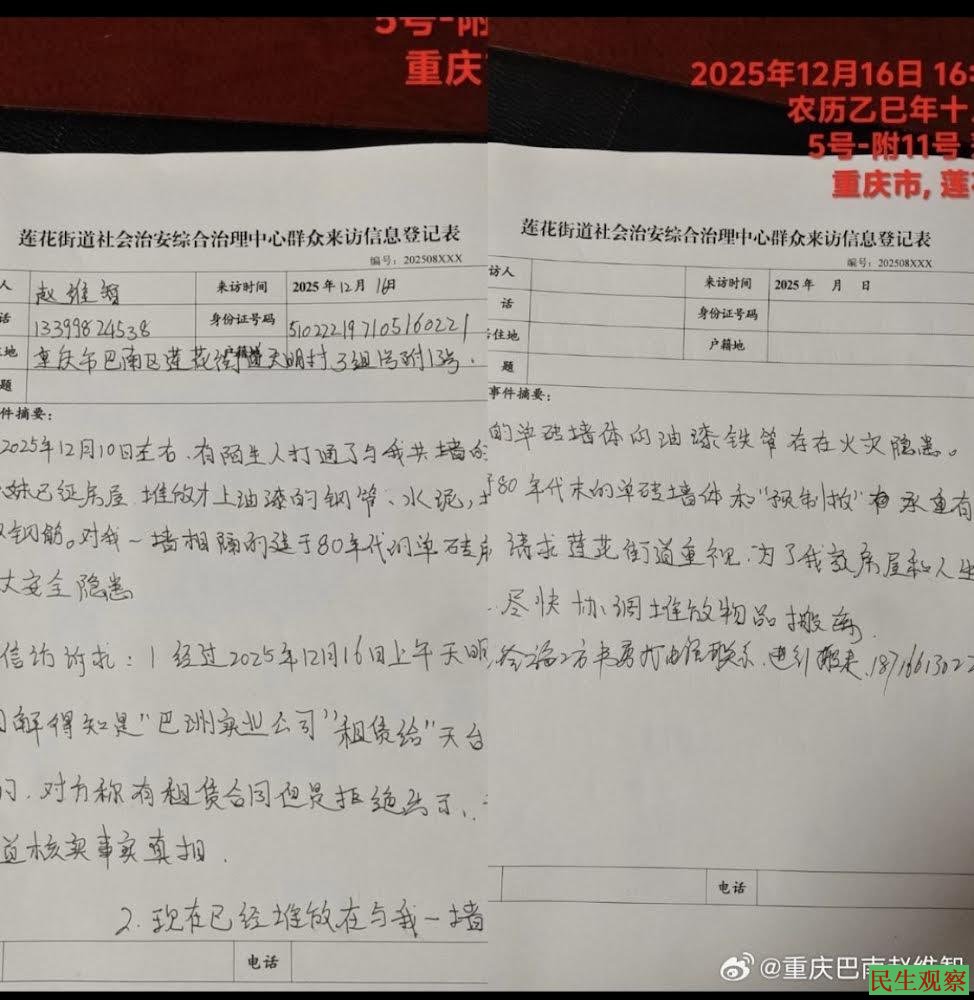 5号-附
重庆
莲花街道社会治安综合治理中心群众来访信息登记表
编号：202508XXX
人 赵维智 来访时间 2025年12月16日
话 13399824538 身份证号码 510222197105160221
地 重庆市巴南区莲花街道天明村3组1号附13号 户籍地
题
件摘要：
2025年12月10日左右，有陌生人打通了与我共墙的
妹已征房屋，堆放才上油漆的钢管、水泥，
钢筋。对我一墙相隔的建于80年代的单砖房
大安全隐患
信访诉求：1 经过2025年12月16日上午天明
解得知是"巴洲实业公司"租赁给"天台
司，对方称有租赁合同但是拒绝出示，
道核实事实真相.
2.现在已经堆放在与我一墙
电话
2025年12月16日 16:
农历乙巳年十
5号-附11号
重庆市, 莲
莲花街道社会治安综合治理中心群众来访信息登记表
编号：202508XXX
访人 来访时间 2025年 月 日
话 身份证号码
住地 户籍地
题
事件摘要：
的单砖墙体的油漆铁管存在火灾隐患。
80年代末的单砖墙体和"预制板"承重有
请求莲花街道重视，为了我家房屋和人生
尽快协调堆放物品搬离.
电话
@重庆巴南赵维智
民生观察